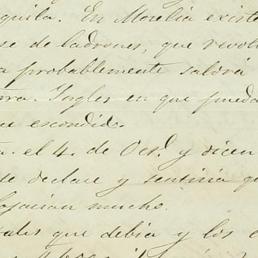 quila. En Morelia existe
se de ladrones, que revol
a probablemente saldrá
rra. Ingles en que pueda
ue escondid
a. el 4 de Oct.l y dicen
se declase y sentiria qu
ojarian mucho.
ales que debia y los